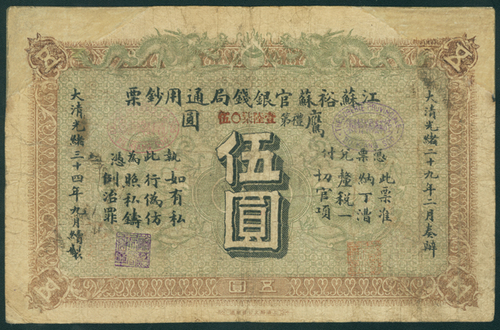 江蘇裕蘇官銀錢局通用鈔票
鷹圓
禮第
伍圓
憑此票准
票納丁漕
兌釐稅一
付切官項
執如有私
此行偽仿
為照私鑄
憑例治罪
大清光緒二十九年二月奏辦
大清光緒三十四年九月續製
圓五